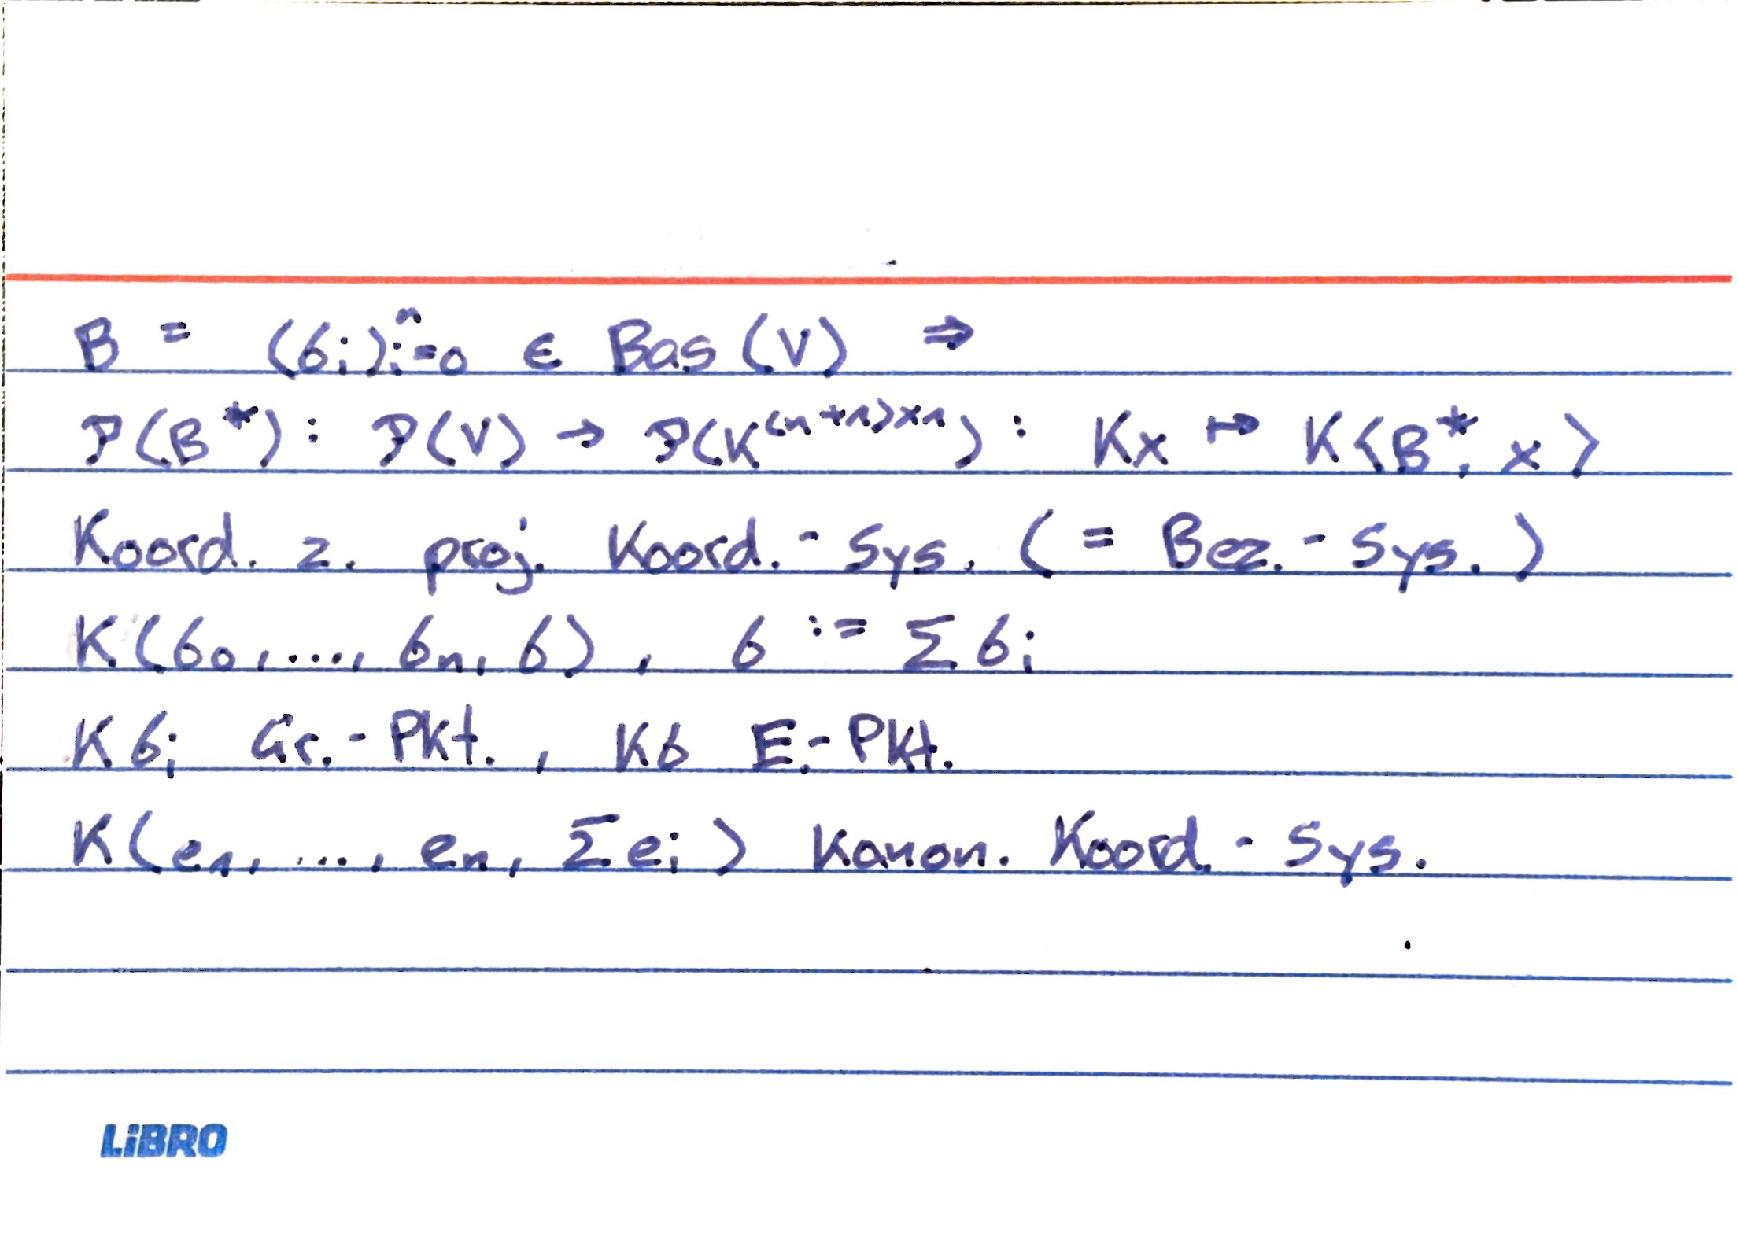 B = (b_i)_{i=0}^n ∈ Bas(V) ⇒
P(B*): P(V) → P(K^{(n+1)×1}): Kx ↦ K⟨B*, x⟩
Koord. z. proj. Koord.-Sys. (= Bez.-Sys.)
K(b_0, ..., b_n, b), b := Σ b_i
Kb_i Gr.-Pkt., Kb E.-Pkt.
K(e_1, ..., e_n, Σe_i) kanon. Koord.-Sys.
LiBRO